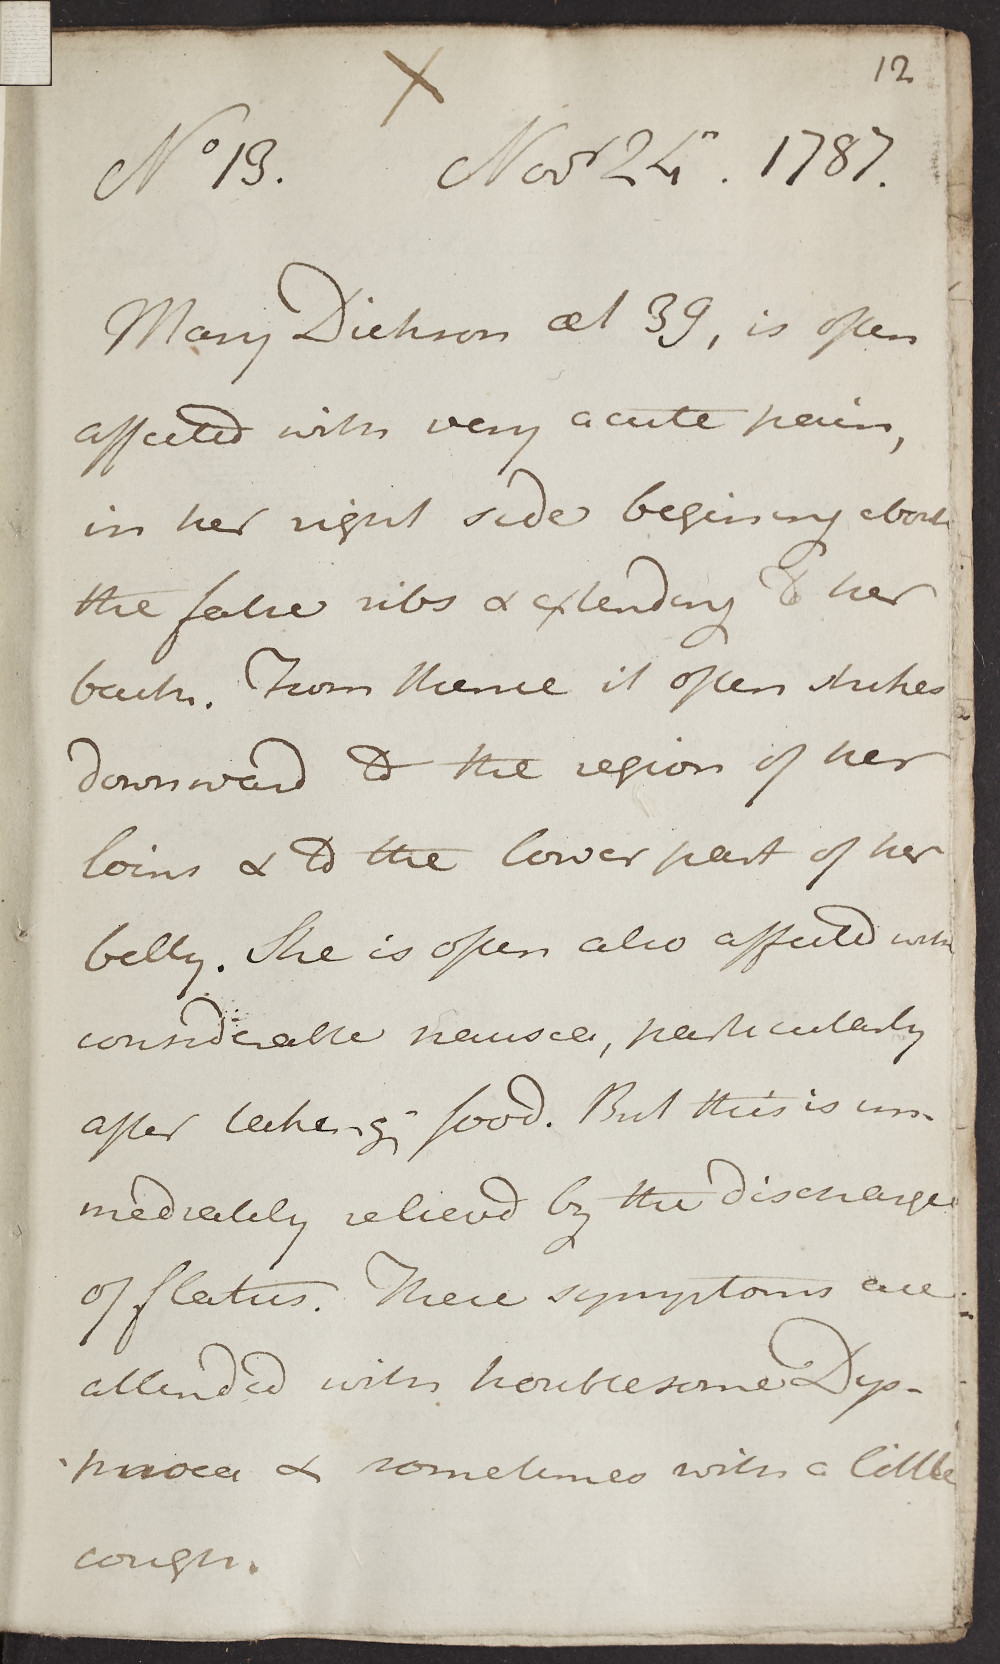 12
X
No 13. Novr 24th. 1787.
Mary Dickson æt 39, is often
affected with very acute pain,
in her right side begining about
the false ribs & extending to her
back. From thence it often strikes
downward to the region of her
loins & to the lower part of her
belly. She is often also affected with
considerable nausea, particularly
after taking food. But this is im-
mediately relievd by the discharge
of flatus. These symptoms are
attended with troublesome Dys-
pnoea & sometimes with a little
cough.